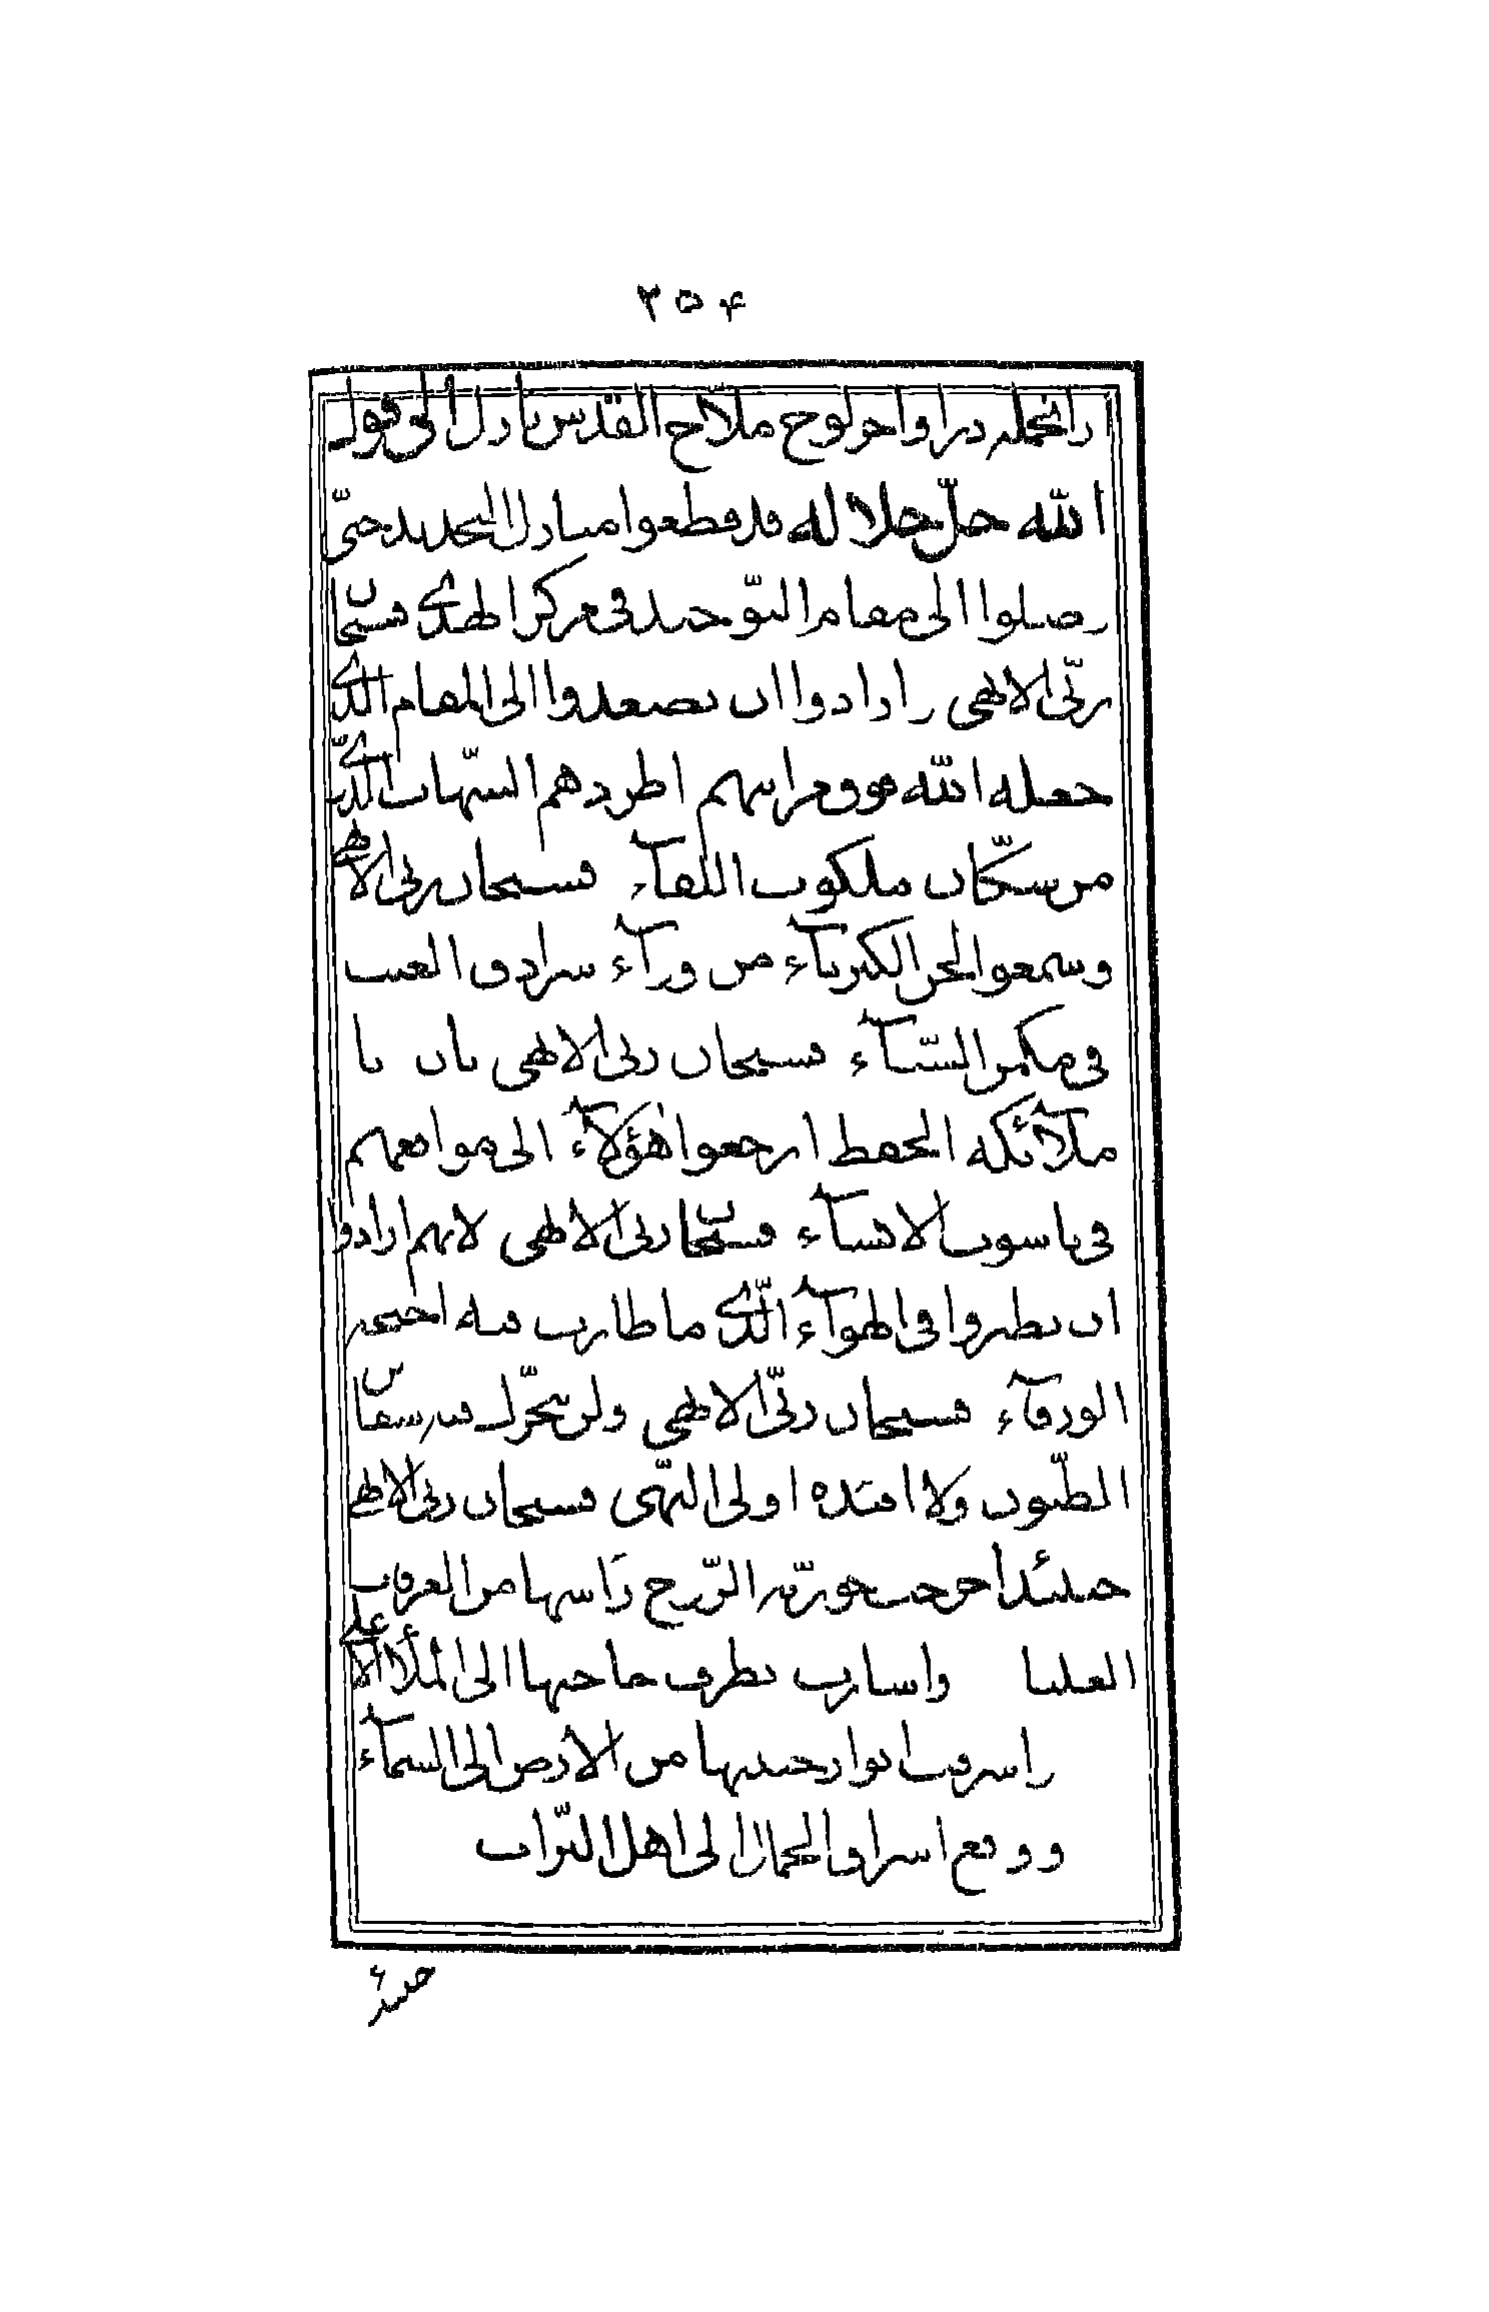 ۲۵۴
و از جمله در اواخر لوح ملّاح القدس نازل الی قوله
الله جلّ جلاله قد قطعوا منازل التحدید حتّی
وصلوا الی مقام التّوحید فی مرکز الهدی فسبحان
ربّی الابهی و ارادوا ان یصعدوا الی المقام الّذی
جعله الله فوق مراتبهم اطردهم الشّهاب الدّرّی
من سکّان ملکوت اللقآء فسبحان ربی الابهی
و سمعوا لحن الکبریآء من ورآء سرادق الغیب
فی مکمن السّنآء فسبحان ربی الابهی بان یا
ملآئکه الحفظ ارجعوا هؤلآء الی مواقعهم
فی ناسوت الانشآء فسبحان ربی الابهی لانهم ارادوا
ان یطیروا فی الهوآء الّذی ما طارت فیه اجنحه
الورقآء فسبحان ربّی الابهی و لن یتحرّک فیه سفآئن
الظّنون و لا افئده اولی النّهی فسبحان ربی الابهی
حینئذ اخرجت حوریّه الرّوح رأسها من الغرفات
العلیا و اشارت بطرف حاجبها الی الملأ الاعلی
و اشرقت انوار جبینها من الارض الی السمآء
و وقع اشراق الجمال الی اهل التّراب
حینئذ